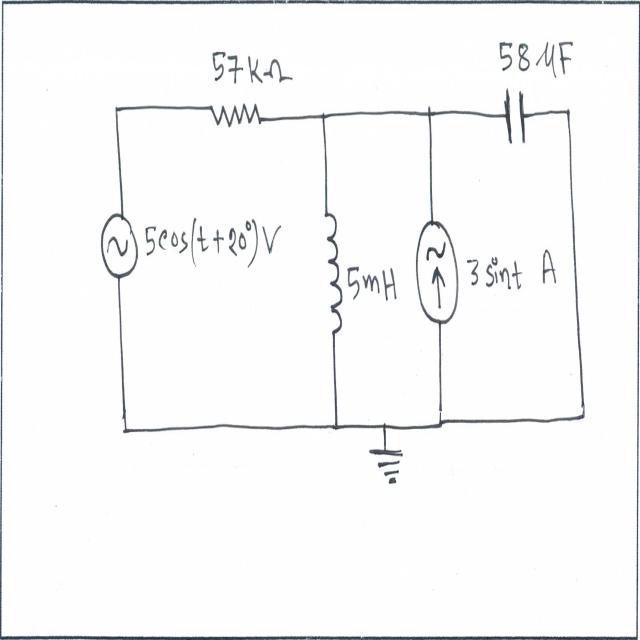 57kΩ
58 μF
5cos(t+20°)V
5mH
3 sint A